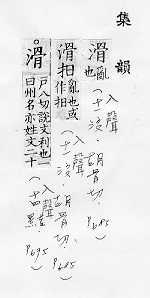 集韻
滑亂也(入聲十一沒、胡骨切、P685)
滑抇亂也或作抇(入聲十一沒、胡骨切、P685)
。滑戶八切說文利也一曰州名亦姓文二十(入聲十四黠 P695)